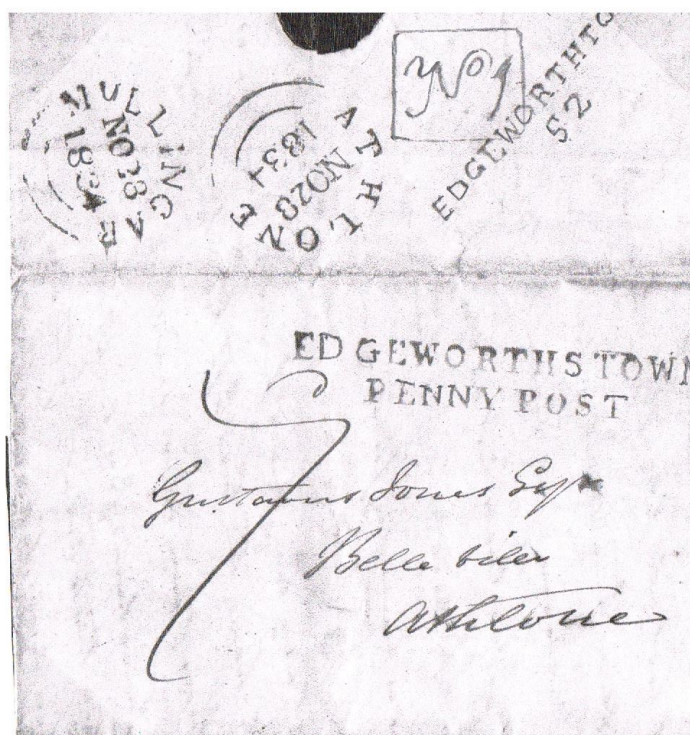 MULLINGAR
NO 28
1834
ATHLONE
NO 28
1834
No 1
EDGEWORTHTO
52
EDGEWORTHSTOWN
PENNY POST
7
Gustavus Jones Esqr
Belle
Athlone